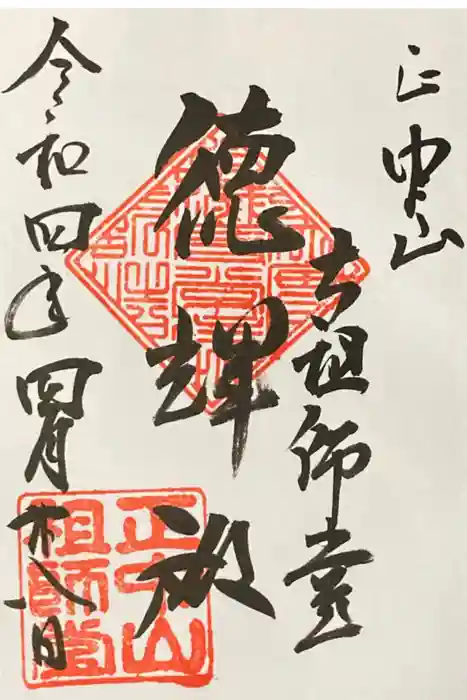 正中山
祖師堂
徳輝
令和四年四月廿八日
正中山
祖師堂